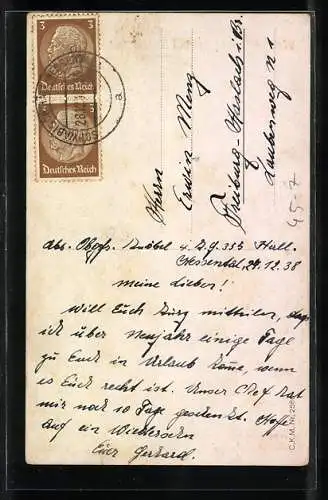 3
Deutsches Reich
3
Deutsches Reich
a
Herrn
Erwin Menz
Freiburg-
45-7
Abs. Obgfr. Knöbel 4. I.R. 355 Hall.
Hessental, 27.12.38
Meine Lieben!
Will Euch kurz mitteilen, dass
ich über Neujahr einige Tage
zu Euch in Urlaub kome, wenn
es Euch recht ist. Unser Chef hat
mir noch 10 Tage geschenkt. Hoffe
auf ein Wiedersehn
Euer Gerhard.